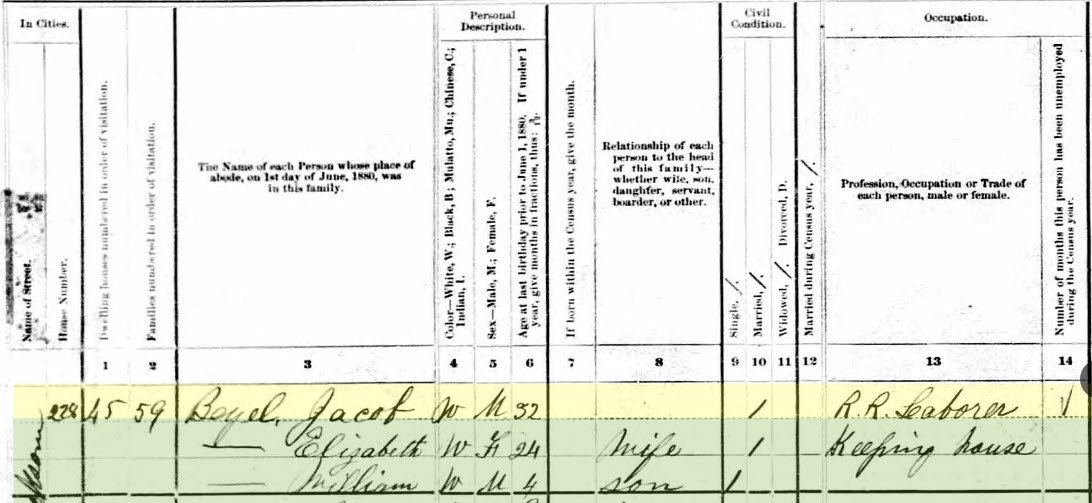 In Cities.
Name of Street.
House Number.
Dwelling houses numbered in order of visitation.
Families numbered in order of visitation.
The Name of each Person whose place of
abode, on 1st day of June, 1880, was
in this family.
Personal
Description.
Color—White, W.; Black, B; Mulatto, Mu.; Chinese, C.;
Indian, I.
Sex—Male, M.; Female, F.
Age at last birthday prior to June 1, 1880. If under 1
year, give months in fractions, thus:
If born within the Census year, give the month.
Relationship of each
person to the head
of this family—
whether wife, son,
daughter, servant,
boarder, or other.
Civil
Condition.
Single, /.
Married, /.
Widowed, /. Divorced, D.
Married during Census year, /.
Occupation.
Profession, Occupation or Trade of
each person, male or female.
Number of months this person has been unemployed
during the Census year.
1 2 3 4 5 6 7 8 9 10 11 12 13 14
228 45 59 Beyel, Jacob W M 32 / R.R. Laborer
— Elizabeth W F 24 Wife / Keeping house
— William W M 4 son /